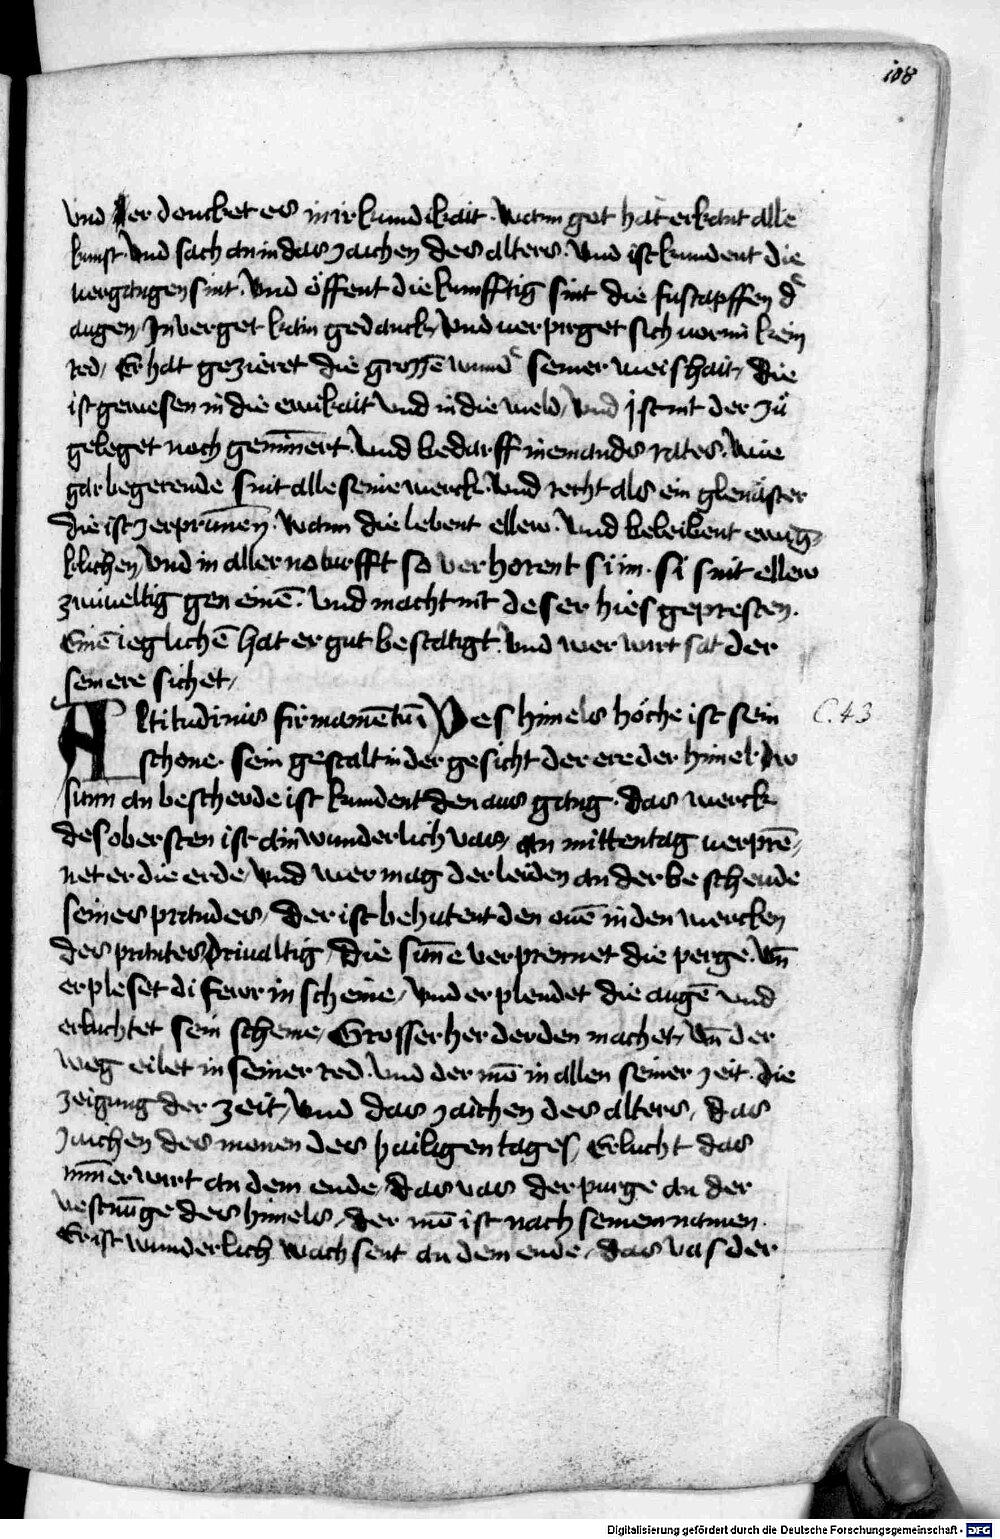 108
vnd er dencket es in ir kundikait. Wann got hat erkant alle
kunst. Vnd sach an in das zaichen des alters. Vnd ist kundent die
vergangen sint. Vnd öffent die kunfftig sint die fustapffen d
augen, In verget kain gedanck, Vnd verpirget sich vor im kein
red, Er hat gezieret die grossē wund seiner weishait, die
ist gewesen in die ewikait Vnd in die weld, Vnd ist nit der zů
geleget noch gemīnert. Vnd bedarff niemandes rates. Wie
gar begerende sint alle seine werck. Vnd recht als ein glenaster
die ist zerprūnen. Wann die lebent ellew. Vnd beleibent ewig-
klichen, Vnd in aller noturfft so verhorent si im. si sint ellew
zwiueltig gen einē. Vnd macht nit des er hies gepresten.
Einē ieglichē hat er gut bestatigt. Vnd wer wirt sat der
sein ere sichet,
Altitudinis firmamētū Des himels höche ist sein C. 43
schone. sein gestalt in der gesicht der ere der himel. Die
sunn an bescheude ist kundent den aus gang. das werck
des obersten ist ain wunderlich vas, An mittentag verprē-
net er die erde, Vnd wer mag der leiden an der bescheude
seines prandes, der ist behutent den ouē in den wercken
des prantes Driualtig, die sūne verprennet die perge. Vn̄
erpleset di fewrin scheine, Vnd erplendet die augē vnd
erluchtet sein scheine, Grosser her der den machet, Vn̄ der
weg eilet in seiner red. Vnd der mō in allen seiner zeit. die
zeigung der zeit, Vnd das zaichen des alters, das
zaichen des monen des hailigen tages, Erlucht das
mīner wirt an dem ende, das vas der purge an der
vestnūge des himels, der mō ist nach seinem namen.
Er ist wunderlich wachsent an dem ende, das vas der
Digitalisierung gefördert durch die Deutsche Forschungsgemeinschaft - DFG